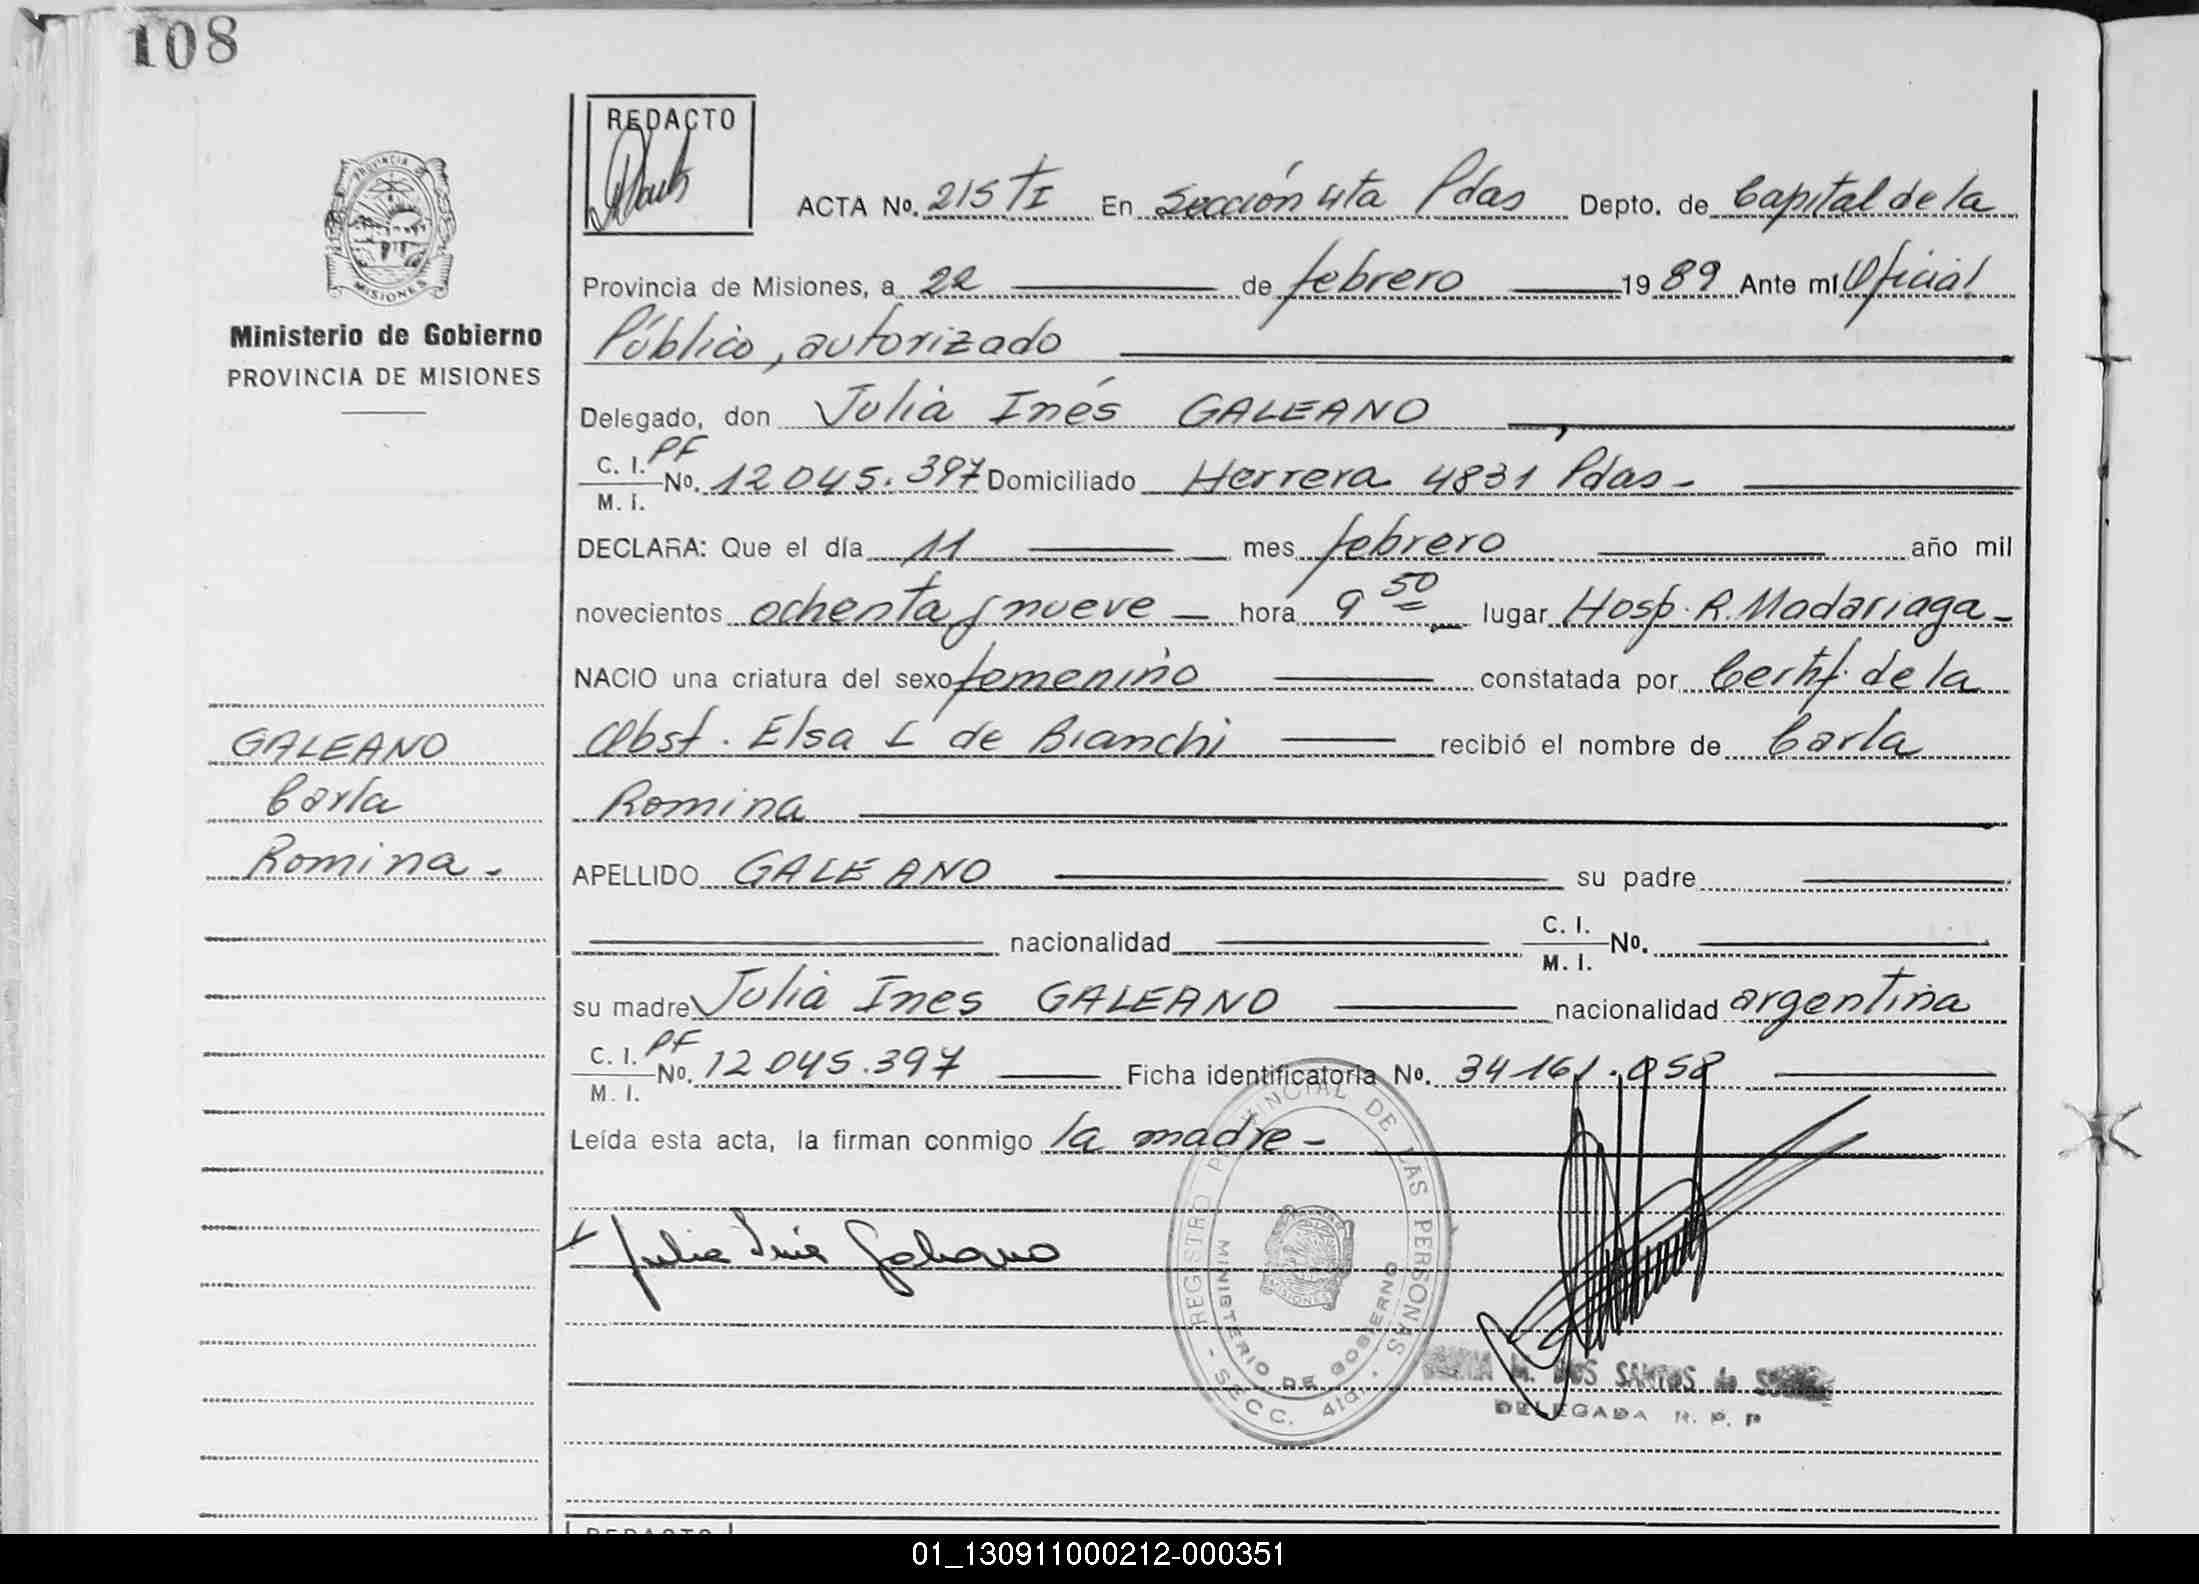 108
REDACTO
ACTA No. 215 TI En Sección 4ta Pdas Depto. de Capital de la
Provincia de Misiones, a 22 de febrero 1989 Ante mi Oficial
Público, autorizado
Delegado, don Julia Inés GALEANO
C. I. PF
M. I. No. 12.045.397 Domiciliado Herrera 4831 Pdas -
DECLARA: Que el día 11 mes febrero año mil
novecientos ochenta y nueve - hora 9 50 lugar Hosp. R. Madariaga -
NACIO una criatura del sexo femenino constatada por Certif. de la
Obst. Elsa L de Bianchi recibió el nombre de Carla
Romina
APELLIDO GALEANO su padre
nacionalidad C. I. M. I. No.
su madre Julia Ines GALEANO nacionalidad argentina
C. I. PF
M. I. No. 12.045.397 Ficha identificatoria No. 34.161.058
Leída esta acta, la firman conmigo la madre -
Julia Inés Galeano
PROVINCIA DE
MISIONES
Ministerio de Gobierno
PROVINCIA DE MISIONES
GALEANO
Carla
Romina -
REGISTRO PROVINCIAL DE LAS PERSONAS
- SECC. 4ta. -
MINISTERIO DE GOBIERNO
MISIONES
M. DOS SANTOS de
DELEGADA R. P. P
REDACTO
01_130911000212-000351